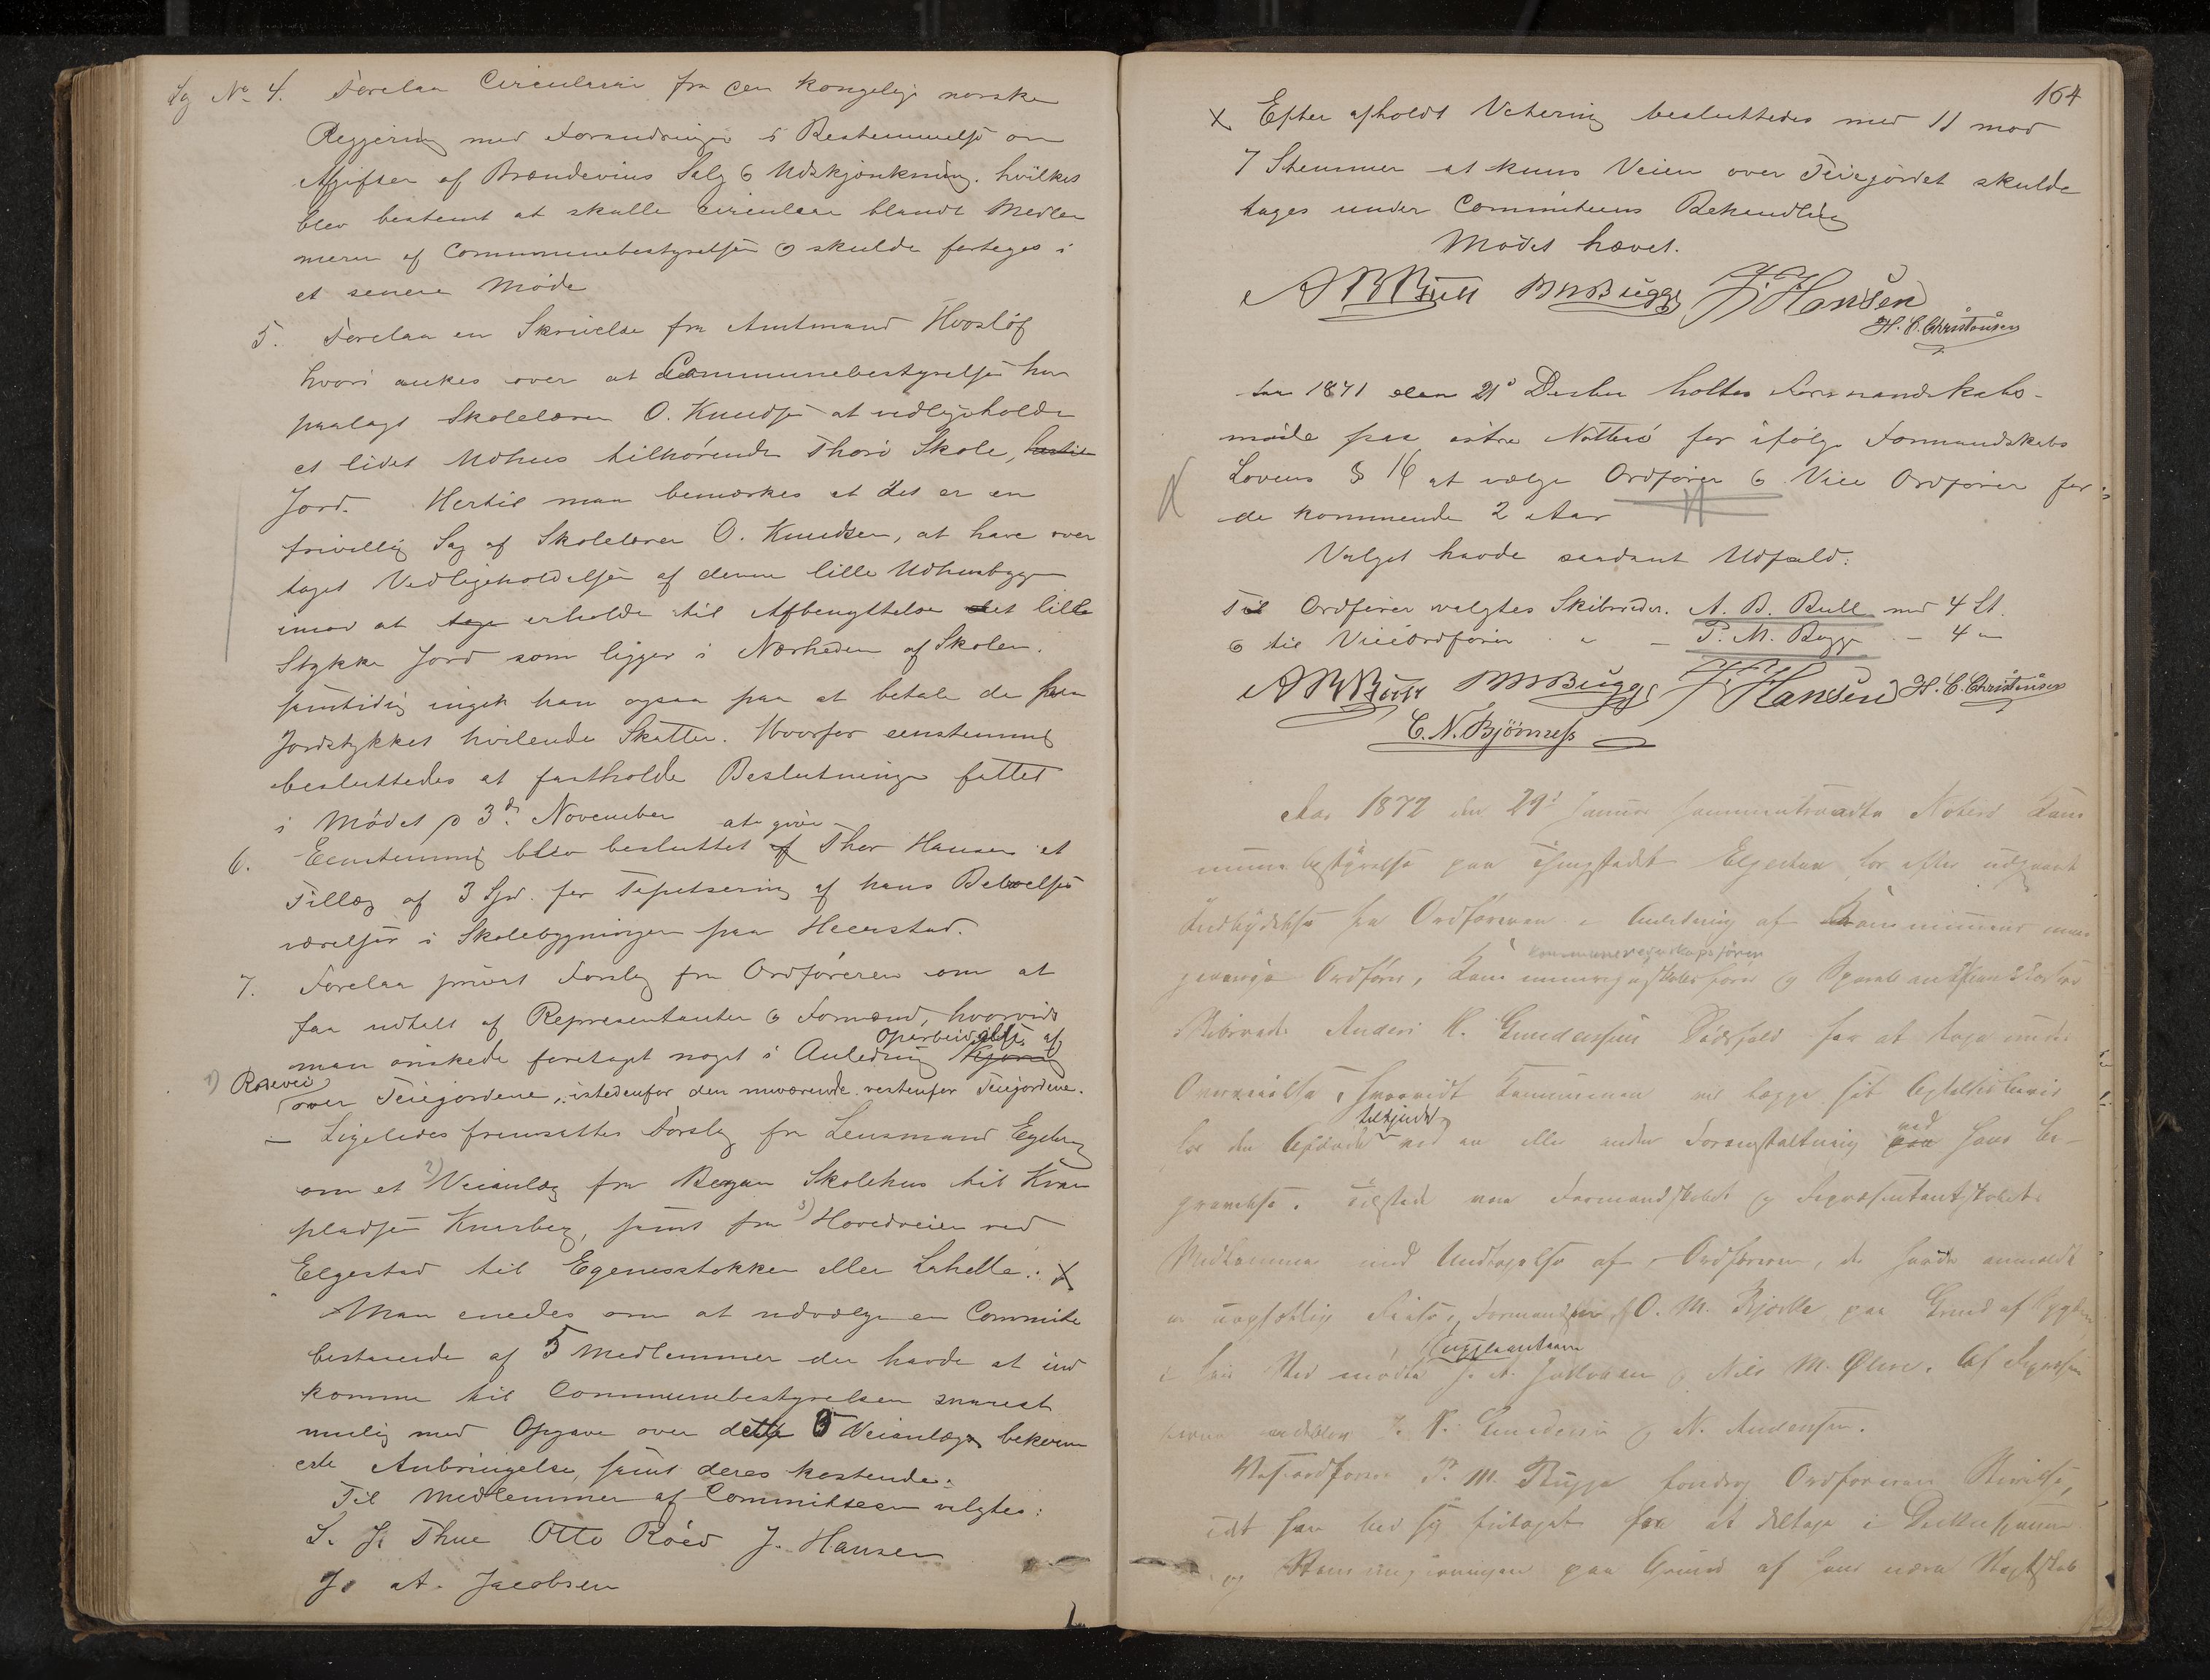 Sg No 4. Forelaa Circulaire fra den kongelige norske
Regjering med Forandringer i Bestemmelse om
Afgifter af Brændeviins Salg & Udskjænkning. hvilket
blev bestemt at skulle circulere blandt Medlem
merne af Communebestyrelsen & skulde foretages i
et senere Møde
5. Forelaa en Skrivelse fra Amtmand Hvosløf
hvori ankes over at Communebestyrelsen har
paalagt Skolelærer O. Knudsen at vedligeholde
et lidet Udhus tilhørende Thorø Skole,
Jord. Hertil maa bemærkes at det er en
frivillig Sag af Skolelærer O. Knudsen, at have over
taget Vedligeholdelsen af denne lille Udhusbygn
imod at tage erholde til Afbenyttelse det lille
Stykke Jord som ligger i Nærheden af Skolen.
samtidig ingik han ogsaa paa at betale de paa
Jordstykket hvilende Skatter. Hvorfor eenstemmig
besluttedes at fastholde Beslutningen fattet
i Mødet p 3d November
at give
6. Eenstemmig blev besluttet af Thor Hansen et
Tillæg af 3 Spd. for Tapetsering af hans Beboelses
værelser i Skolebygningen paa Heerstad.
7. Forelaa privat Forslag fra Ordføreren om at
faa udtalt af Repræsentanter & Formænd, hvorvidt
Oparbeidelse af
man ønskede foretaget noget i Anledning Kjørig
1) Rodevei
over Teiejordene, istedenfor den nuværende vestenfor Teiejordene.
— Ligeledes fremsattes Forslag fra Lensmand Egeberg
om et 2) Veianlæg fra Bergan Skolehus til Kvan
pladsen Knarberg, samt fra 3) Hovedveien ved
Elgestad til Egenesstokken eller Lahelle. X
Man enedes om at udvælge en Commite
bestaaende af 5 Medlemmer der havde at ind
komme til Communebestyrelsen snarest
mulig med Opgave over dette 3 Veianlægs bekvem
este Anbringelse, samt deres kostende.
Til Medlemmer af Committeen valgtes:
S. J. Thue Otto Röed J. Hansen
J. A. Jacobsen
164
X Efter afholdt Votering besluttedes med 11 mod
7 Stemmer at kuns Veien over Teiejordet skulde
tages under Committeens Behandling
Mødet hævet.
A B Bull P M Bugge J. Hansen
H. C. Christensen
Aar 1871 den 21d Decbr holtes Formandskabs-
møde paa østre Nøtterö for ifølge Formandskabs
Lovens § 16 at vælge Ordfører & Vice Ordfører for
de kommende 2 Aar
Valget havde saadant Udfald:
Til Ordfører valgtes Skibsreder. A. B. Bull med 4 St.
& til Viceordfører " — P. M. Bugge — 4 "
A B Bull P M Bugge J. Hansen H. C. Christensen
C. N. Bjørness
Aar 1872 den 29d Januar sammentraadte Nøterö Kom
munebestyrelse paa Thingstedet Elgestad for efter udgaaet
Indbydelse fra Ordføreren i Anledning af Kommunens mang
Kommuneregnskabsfører
jævnige Ordfører, Kommuneregnskabsfører og
Skibsreder Anders K. Gundersens Dødsfald for at tage under
Overveielse, hvorvidt Kommunen vil lægge sit Agtelsesbevis
tilkjende
for den Afdøde ved en eller anden Foranstaltning paa ved hans Be-
gravelse. Tilstede var Formandskabets og Repræsentantskabets
Medlemmer med Undtagelse af Ordføreren, der havde anmeldt
O. M. Bjerke, paa Grund af Sygdom
Suppleanterne
i hans Sted mødte J. A. Jacobsen & Nils M. Øhre. Af Repræsen
J. N. Gundersen & N. Andersen.
Viceordfører P. M. Bugge foredrog Ordførerens Skrivelse,
idet han bad sig fritaget for at deltage i Diskussionen
og Stemmegivningen paa Grund af hans nære Slegtskab